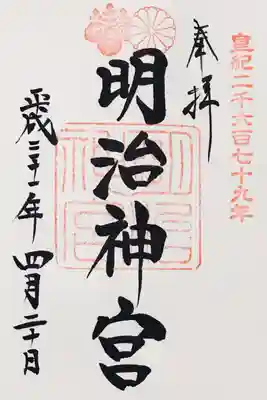 皇紀二千六百七十九年
奉拝
明治神宮
平成三十一年 四月二十日
明治神宮